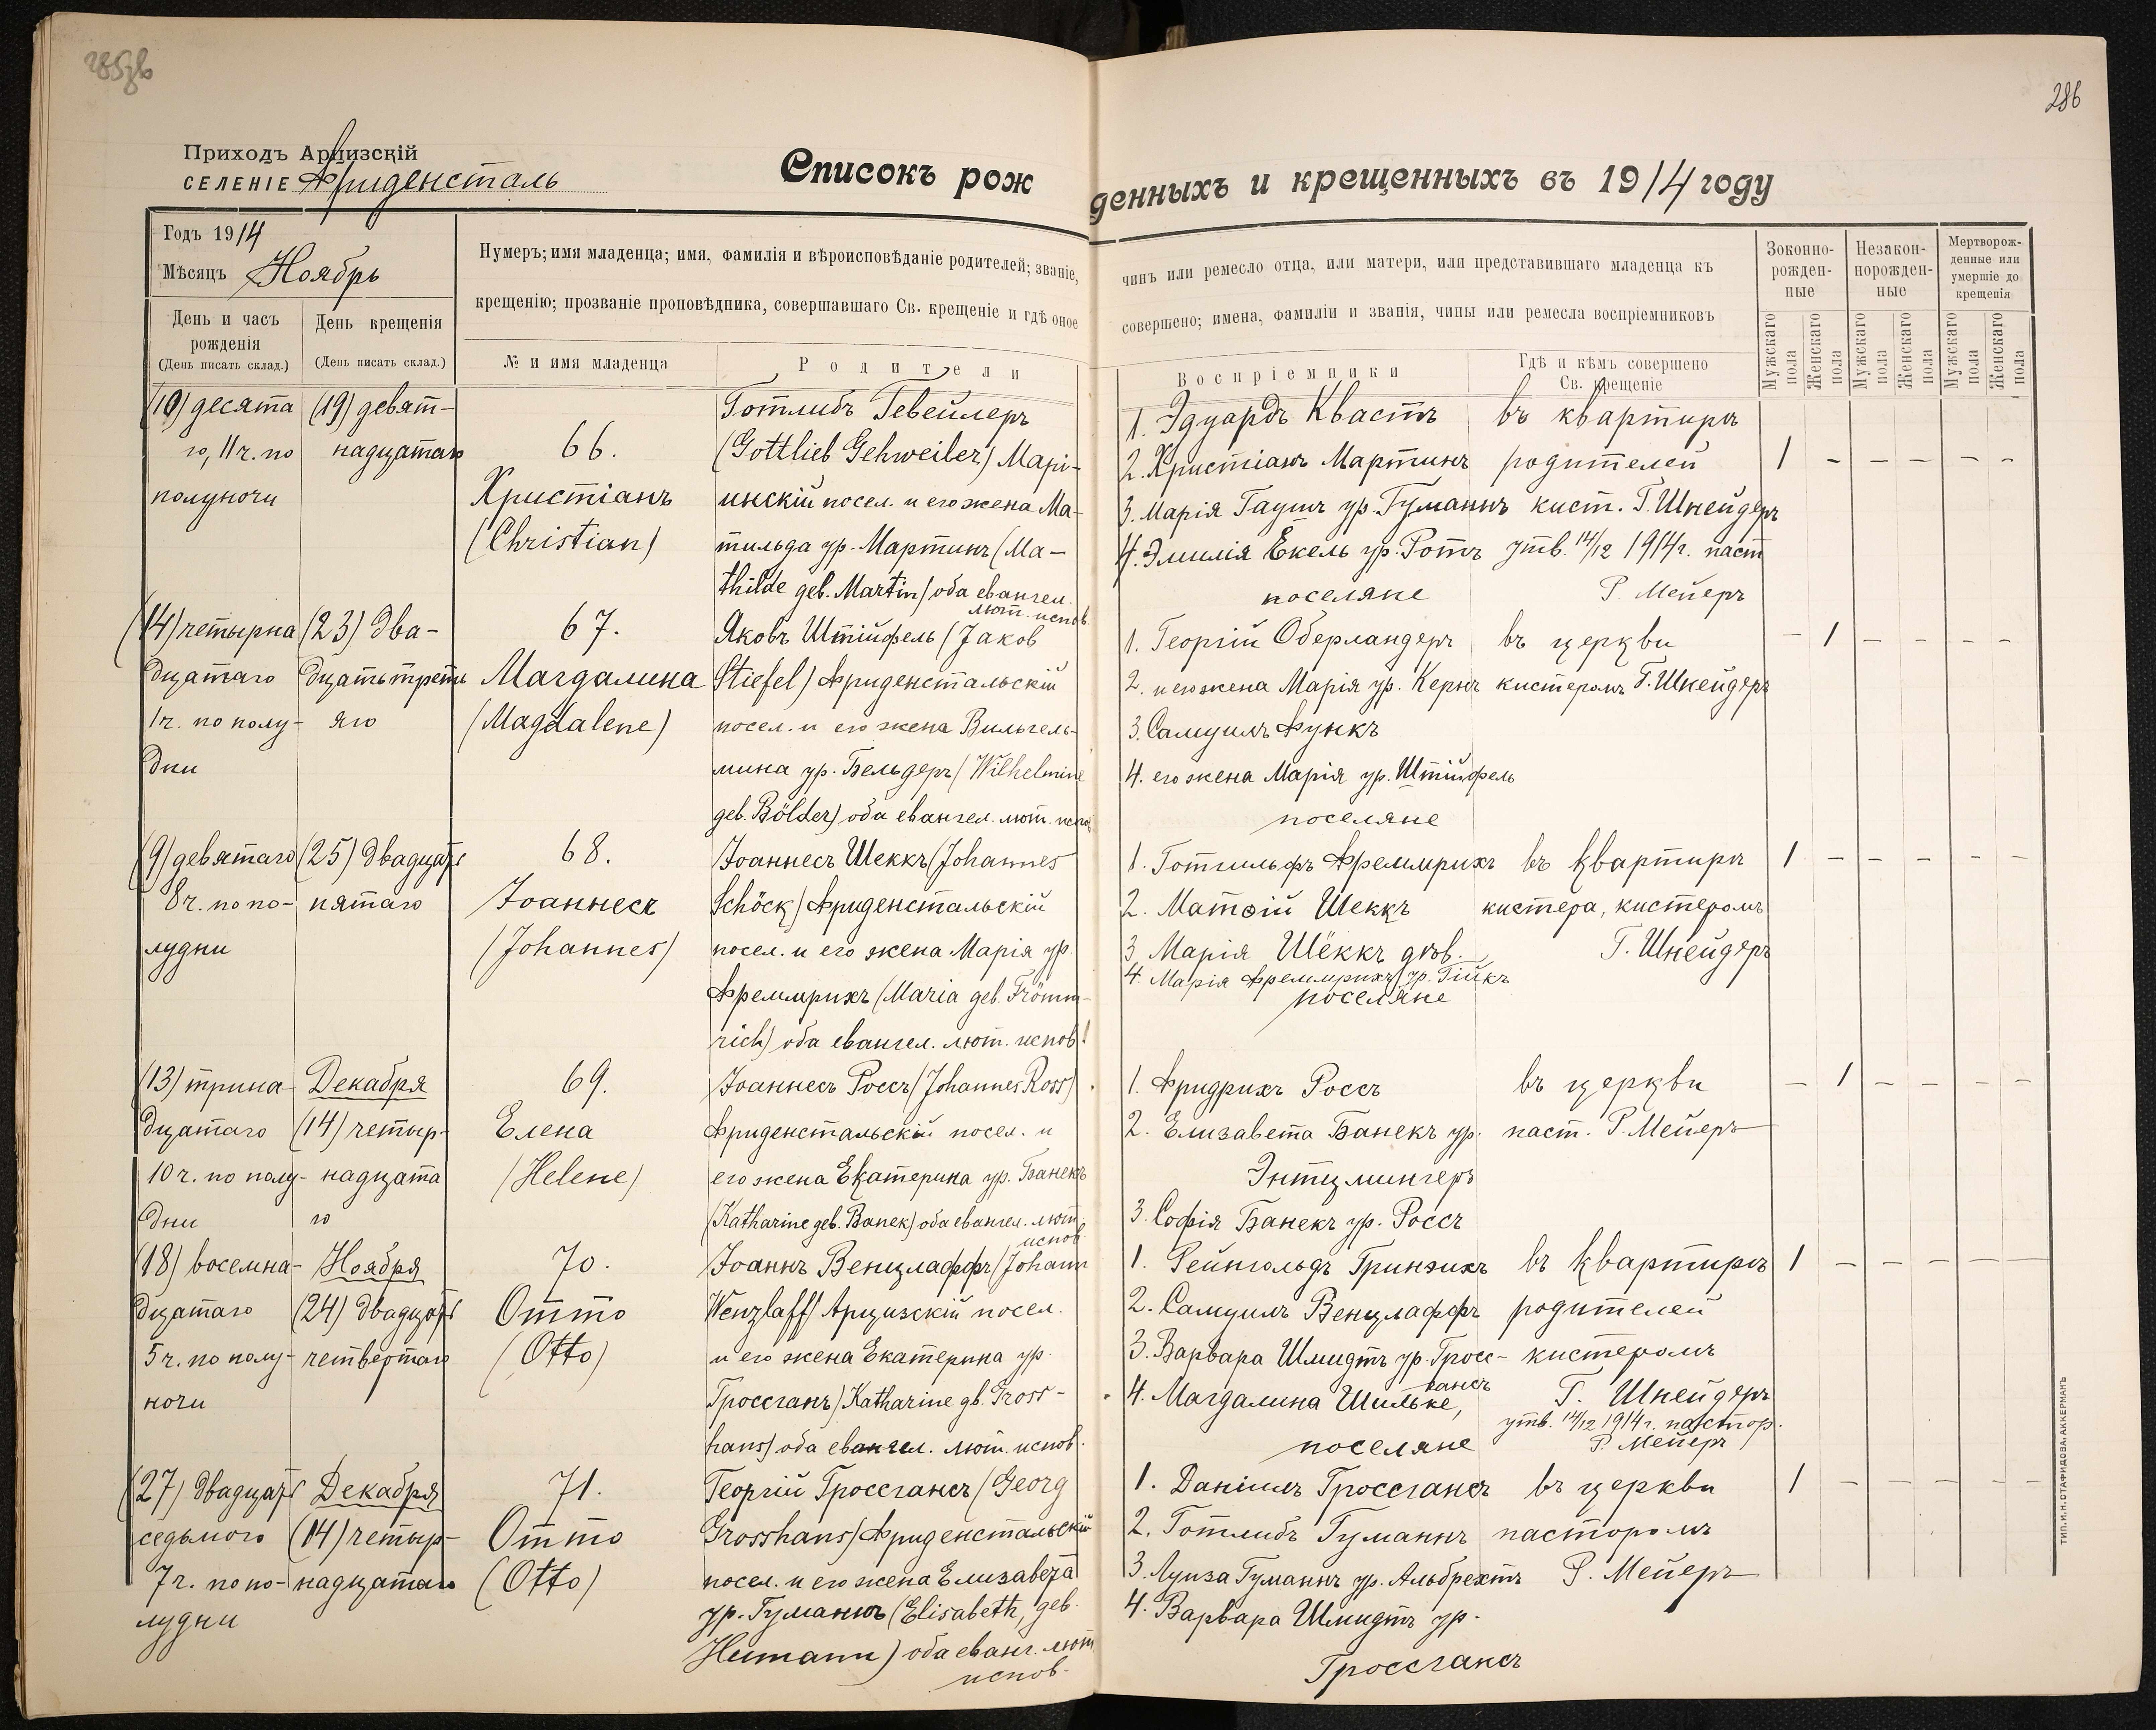 286
Приходъ Арцизскій
СЕЛЕНІЕ Фриденсталь
Списокъ рожденныхъ и крещенныхъ въ 1914 году
Годъ 1914
Мѣсяцъ Ноябрь
День и часъ рожденія
(День писать склад.)
День крещенія
(День писать склад.)
Нумеръ; имя младенца; имя, фамилія и вѣроисповѣданіе родителей; званіе, чинъ или ремесло отца, или матери, или представившаго младенца къ
крещенію; прозваніе проповѣдника, совершавшаго Св. крещеніе и гдѣ оное совершено; имена, фамиліи и званія, чины или ремесла воспріемниковъ
№ и имя младенца
Родители
Воспріемники
Гдѣ и кѣмъ совершено
Св. крещеніе
Зоконно-
рожден-
ные
Незакон-
норожден-
ные
Мертворож-
денные или
умершіе до
крещенія
Мужскаго пола
Женскаго пола
Мужскаго пола
Женскаго пола
Мужскаго пола
Женскаго пола
(10) десята
го, 11 ч. по
полуночи
(19) девят-
надцатаго
66.
Христіанъ
(Christian)
Готлибъ Гевейлеръ
(Gottlieb Gehweiler) Марі-
инскій посел. и его жена Ма-
тильда ур. Мартинъ (Ma-
thilde geb. Martin) оба евангел.
лют. испов.
1. Эдуардъ Квастъ
2. Христіанъ Мартинъ
3. Марія Гаушъ ур. Гуманнъ
4. Эмилія Екель ур. Ротъ
поселяне
въ квартирѣ
родителей
кист. Г. Шнейдеръ
утв. 14/12 1914 г. паст
Р. Мейеръ
1 – – – – –
(14) четырна
дцатаго
1 ч. по полу-
дни
(23) два-
дцатьтреть
яго
67.
Магдалина
(Magdalene)
Яковъ Штійфель (Jakob
Stiefel) Фриденстальскій
посел. и его жена Вильгель-
мина ур. Бельдеръ (Wilhelmine
geb. Bölder) оба евангел. лют. испов.
1. Георгій Оберландеръ
2. и его жена Марія ур. Кернъ
3. Самуилъ Функъ
4. его жена Марія ур. Штійфель
поселяне
въ церкви
кистеромъ Г. Шнейдеръ
– 1 – – – –
(9) девятаго
8 ч. по по-
лудни
(25) двадцать
пятаго
68.
Іоаннесъ
(Johannes)
Іоаннесъ Шеккъ (Johannes
Schöck) Фриденстальскій
посел. и его жена Марія ур.
Фреммрихъ (Maria geb. Frömm-
rich) оба евангел. лют. испов.
1. Готгильфъ Фреммрихъ
2. Матѳій Шеккъ
3. Марія Шёккъ дѣв.
4. Марія Фреммрихъ ур. Гійкъ
поселяне
въ квартирѣ
кистера, кистеромъ
Г. Шнейдеръ
1 – – – – –
(13) трина-
дцатаго
10 ч. по полу-
дни
Декабря
(14) четыр-
надцата
го
69.
Елена
(Helene)
Іоаннесъ Россъ (Johannes Ross)
Фриденстальскій посел. и
его жена Екатерина ур. Банекъ
(Katharine geb. Banek) оба евангел. лют.
испов.
1. Фридрихъ Россъ
2. Елизавета Банекъ ур.
Энтцмингеръ
3. Софія Банекъ ур. Россъ
въ церкви
паст. Р. Мейеръ
– 1 – – – –
(18) восемна-
дцатаго
5 ч. по полу-
ночи
Ноября
(24) двадцать
четвертаго
70.
Отто
(Otto)
Іоаннъ Венцлаффъ (Johann
Wenzlaff) Арцизскій посел.
и его жена Екатерина ур.
Гроссганъ) Katharine gb. Gross-
hans) оба евангел. лют. испов.
1. Рейнгольдъ Гринэихъ
2. Самуилъ Венцлаффъ
3. Варвара Шмидтъ ур. Гросс-
гансъ
4. Магдалина Шильке,
поселяне
въ квартирѣ
родителей
кистеромъ
Г. Шнейдеръ
утв. 14/12 1914 г. пастор.
Р. Мейеръ
1 – – – – –
(27) двадцать
седьмого
7 ч. по по-
лудни
Декабря
(14) четыр-
надцатаго
71.
Отто
(Otto)
Георгій Гроссгансъ (Georg
Grosshans) Фриденстальскій
посел. и его жена Елизавета
ур. Гуманнъ (Elisabeth, geb.
Humann) оба еванг. лют.
испов.
1. Даніилъ Гроссгансъ
2. Готлибъ Гуманнъ
3. Луиза Гуманнъ ур. Альбрехтъ
4. Варвара Шмидтъ ур.
Гроссгансъ
въ церкви
пасторомъ
Р. Мейеръ
1 – – – – –
ТИП. И. Н. СТАФИДОВА, АККЕРМАНЪ